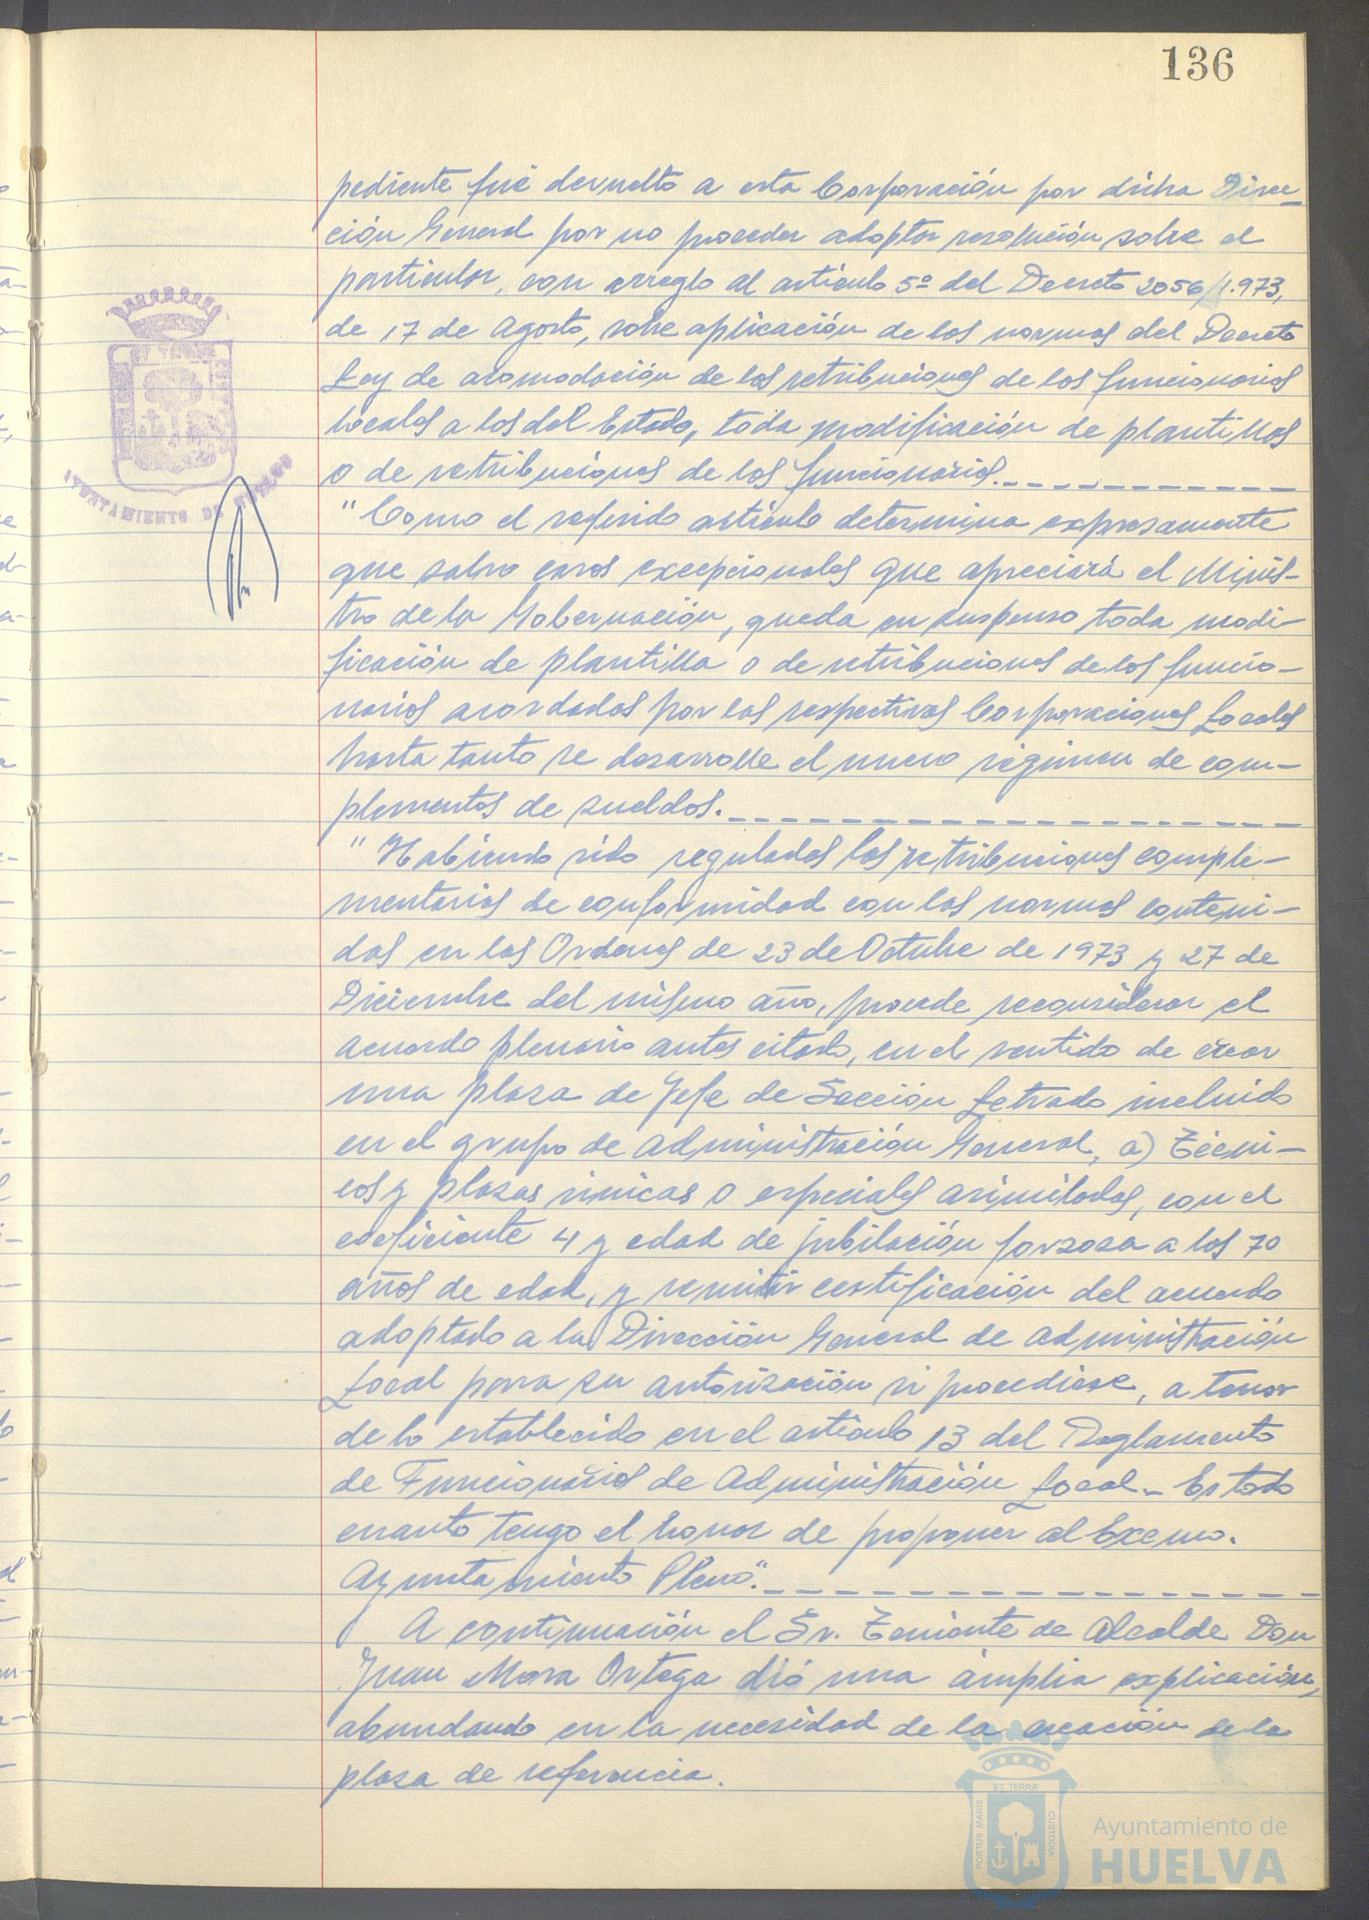 136
pediente fué devuelto a esta Corporación por dicha Direc-
ción General por no proceder adoptar resolución, sobre el
particular, con arreglo al artículo 5º del Decreto 2056/1.973,
de 17 de Agosto, sobre aplicación de las normas del Decreto
Ley de acomodación de las retribuciones de los funcionarios
locales a los del Estado, toda modificación de plantillas
o de retribuciones de los funcionarios.
"Como el referido artículo determina expresamente
que salvo casos excepcionales que apreciará el Minis-
tro de la Gobernación, queda en suspenso toda modi-
ficación de plantilla o de retribuciones de los funcio-
narios acordadas por las respectivas Corporaciones Locales
hasta tanto se desarrolle el nuevo régimen de com-
plementos de sueldos.
"Habiendo sido reguladas las retribuciones comple-
mentarias de conformidad con las normas conteni-
das en las Ordenes de 23 de Octubre de 1973 y 27 de
Diciembre del mismo año, procede reconsiderar el
acuerdo plenario antes citado, en el sentido de crear
una plaza de Jefe de Sección Letrado incluido
en el grupo de Administración General, a) Técni-
cos y plazas únicas o especiales asimiladas, con el
coeficiente 4 y edad de jubilación forzosa a los 70
años de edad, y remitir certificación del acuerdo
adoptado a la Dirección General de Administración
Local para su autorización si procediese, a tenor
de lo establecido en el artículo 13 del Reglamento
de Funcionarios de Administración Local.- Es todo
cuanto tengo el honor de proponer al Excmo.
Ayuntamiento Pleno".
A continuación el Sr. Teniente de Alcalde Don
Juan Mora Ortega dió una ámplia explicación,
abundando en la necesidad de la creación de la
plaza de referencia.
AYUNTAMIENTO DE HUELVA
PORTUS MARIS ET TERRAE CUSTODIA
Ayuntamiento de
HUELVA